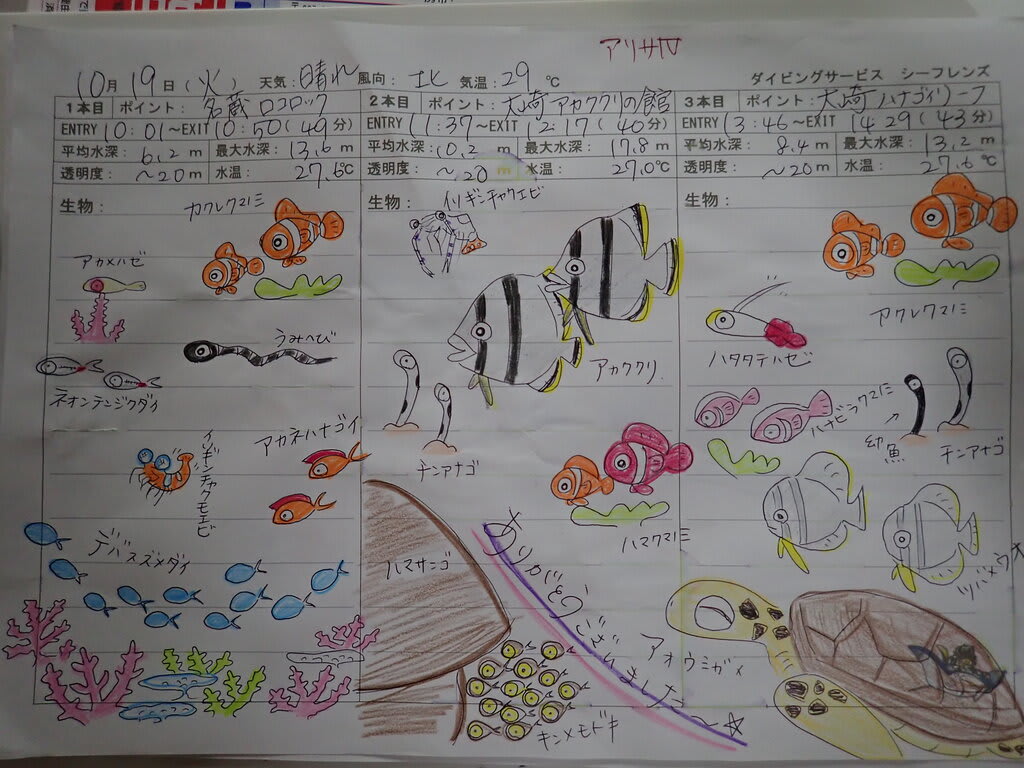 アリサIV
10月19日(火) 天気:晴れ 風向:北 気温:29℃ ダイビングサービス シーフレンズ
1本目 ポイント:名蔵ロコロック
ENTRY 10:01〜EXIT 10:50(49分)
平均水深:6.2m 最大水深:13.6m
透明度:〜20m 水温:27.6℃
生物:
カクレクマノミ
アカメハゼ
うみへび
ネオンテンジクダイ
アカネハナゴイ
イソギンチャクモエビ
デバスズメダイ
2本目 ポイント:大崎アカククリの館
ENTRY 11:37〜EXIT 12:17(40分)
平均水深:10.2m 最大水深:17.8m
透明度:〜20m 水温:27.0℃
生物:
イソギンチャクエビ
アカククリ
チンアナゴ
ハマクマノミ
ハマサンゴ
キンメモドキ
ありがとうございました〜☆
3本目 ポイント:大崎ハナゴイリーフ
ENTRY 13:46〜EXIT 14:29(43分)
平均水深:8.4m 最大水深:13.2m
透明度:〜20m 水温:27.6℃
生物:
カクレクマノミ
ハタタテハゼ
ハナビラクマノミ
幼魚
チンアナゴ
ツバメウオ
アオウミガメ